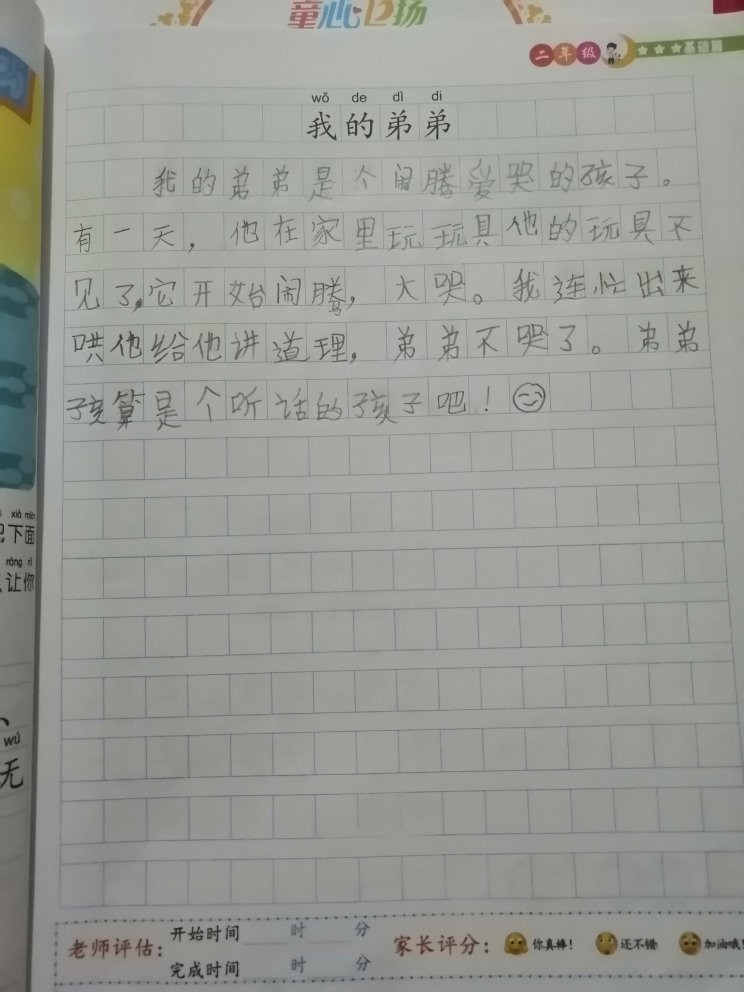 童心飞扬
二年级 ★★★基础篇
wǒ de dì di
我的弟弟
我的弟弟是个闹腾爱哭的孩子。
有一天，他在家里玩玩具他的玩具不
见了，它开始闹腾，大哭。我连忙出来
哄他给他讲道理，弟弟不哭了。弟弟
孩算是个听话的孩子吧！
xià miàn
把下面
ràng nǐ
让你
wú
无
老师评估： 开始时间 时 分
完成时间 时 分
家长评分： 你真棒！ 还不错 加油哦！